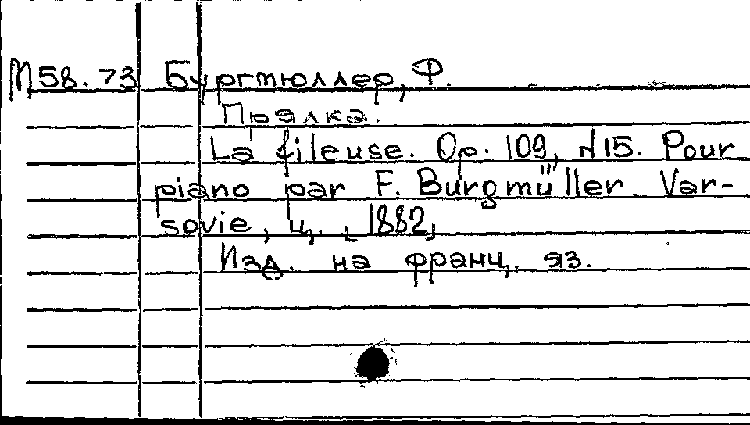 М58.73 Бургмюллер, Ф.
Прялка.
La fileuse. Op. 109, N15. Pour
piano par F. Burgmüller Var-
sovie, ц., 1882,
Изд. на франц. яз.